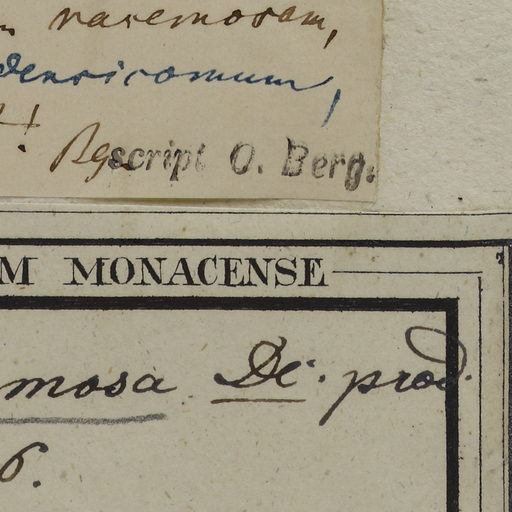 racemosam,
densicomum,
!
Bg
script O. Berg.
M MONACENSE
mosa DC. prod.
6.